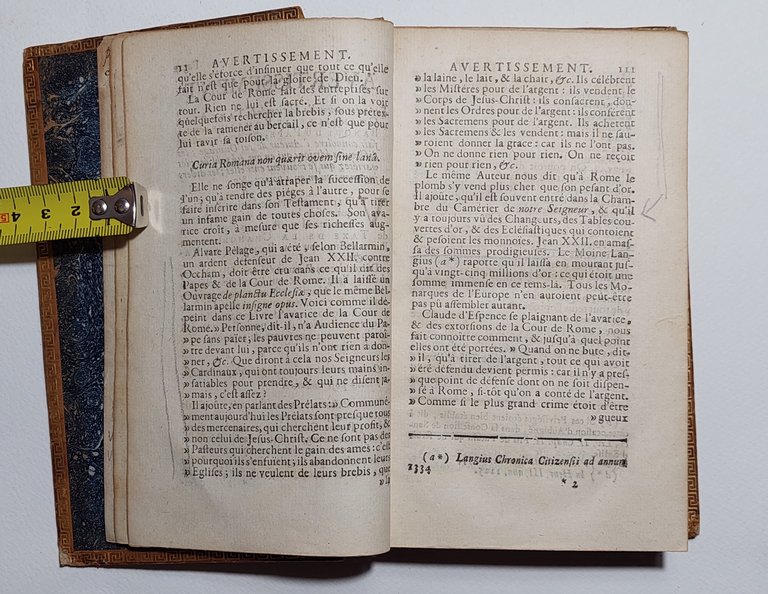 II AVERTISSEMENT.
qu'elle s'éforce d'insinuer que tout ce qu'elle
fait n'est que pour la gloire de Dieu.
La Cour de Rome fait des entreprises sur
tout. Rien ne lui est sacré. Et si on la voit
quelquefois rechercher la brebis, sous prétex-
te de la ramener au bercail, ce n'est que pour
lui ravir sa toison.
Curia Romana non quærit ovem sine lanâ.
Elle ne songe qu'à atraper la succession de
l'un; qu'à tendre des pièges à l'autre, pour se
faire inscrire dans son Testament, qu'à tirer
un infame gain de toutes choses. Son ava-
rice croît, à mesure que ses richesses aug-
mentent.
Alvare Pélage, qui a été, selon Bellarmin,
un ardent défenseur de Jean XXII. contre
Occham, doit être cru dans ce qu'il dit des
Papes & de la Cour de Rome. Il a laissé un
Ouvrage de planctu Ecclesiæ, que le même Bel-
larmin apelle insigne opus. Voici comme il dé-
peint dans ce Livre l'avarice de la Cour de
Rome. » Personne, dit-il, n'a Audience du Pa-
» pe sans païer; les pauvres ne peuvent paroi-
» tre devant lui, parce qu'ils n'ont rien à don-
» ner, &c. Que diront à cela nos Seigneurs les
» Cardinaux, qui ont toujours leurs mains in-
» satiables pour prendre, & qui ne disent ja-
» mais, c'est assez?
Il ajoûte, en parlant des Prélats: » Communé-
» ment aujourd'hui les Prélats sont presque tous
» des mercenaires, qui cherchent leur profit, &
» non celui de Jesus-Christ. Ce ne sont pas des
» Pasteurs qui cherchent le gain des ames: c'est
» pourquoi ils s'enfuient; ils abandonnent leurs
» Eglises; ils ne veulent de leurs brebis, que
» la
AVERTISSEMENT. III
» la laine, le lait, & la chair, &c. Ils célébrent
» les Mistéres pour de l'argent: ils vendent le
» Corps de Jesus-Christ: ils consacrent, don-
» nent les Ordres pour de l'argent: ils conférent
» les Sacremens pour de l'argent. Ils achetent
» les Sacremens & les vendent: mais il ne sau-
» roient donner la grace: car ils ne l'ont pas.
» On ne donne rien pour rien. On ne reçoit
» rien pour rien, &c.
Le même Auteur nous dit qu'à Rome le
plomb s'y vend plus cher que son pesant d'or.
Il ajoûte, qu'il est souvent entré dans la Cham-
bre du Camérier de notre Seigneur, & qu'il
y a toujours vû des Changeurs, des Tables cou-
vertes d'or, & des Eclésiastiques qui contoient
& pesoient les monnoies. Jean XXII. en amas-
sa des sommes prodigieuses. Le Moine Lan-
gius (a*) raporte qu'il laissa en mourant jus-
qu'à vingt-cinq millions d'or: ce qui étoit une
somme immense en ce tems-là. Tous les Mo-
narques de l'Europe n'en auroient peut-être
pas pû assembler autant.
Claude d'Espence se plaignant de l'avarice,
& des extorsions de la Cour de Rome, nous
fait connoître comment, & jusqu'à quel point
elles ont été portées. » Quand on ne bute, dit-
» il, qu'à tirer de l'argent, tout ce qui avoit
» été défendu devient permis: car il n'y a pres-
» que point de défense dont on ne soit dispen-
» sé à Rome, si-tôt qu'on a conté de l'argent.
» Comme si le plus grand crime étoit d'être
» gueux
(a*) Langius Chronica Citizensii ad annum
1334
* 2